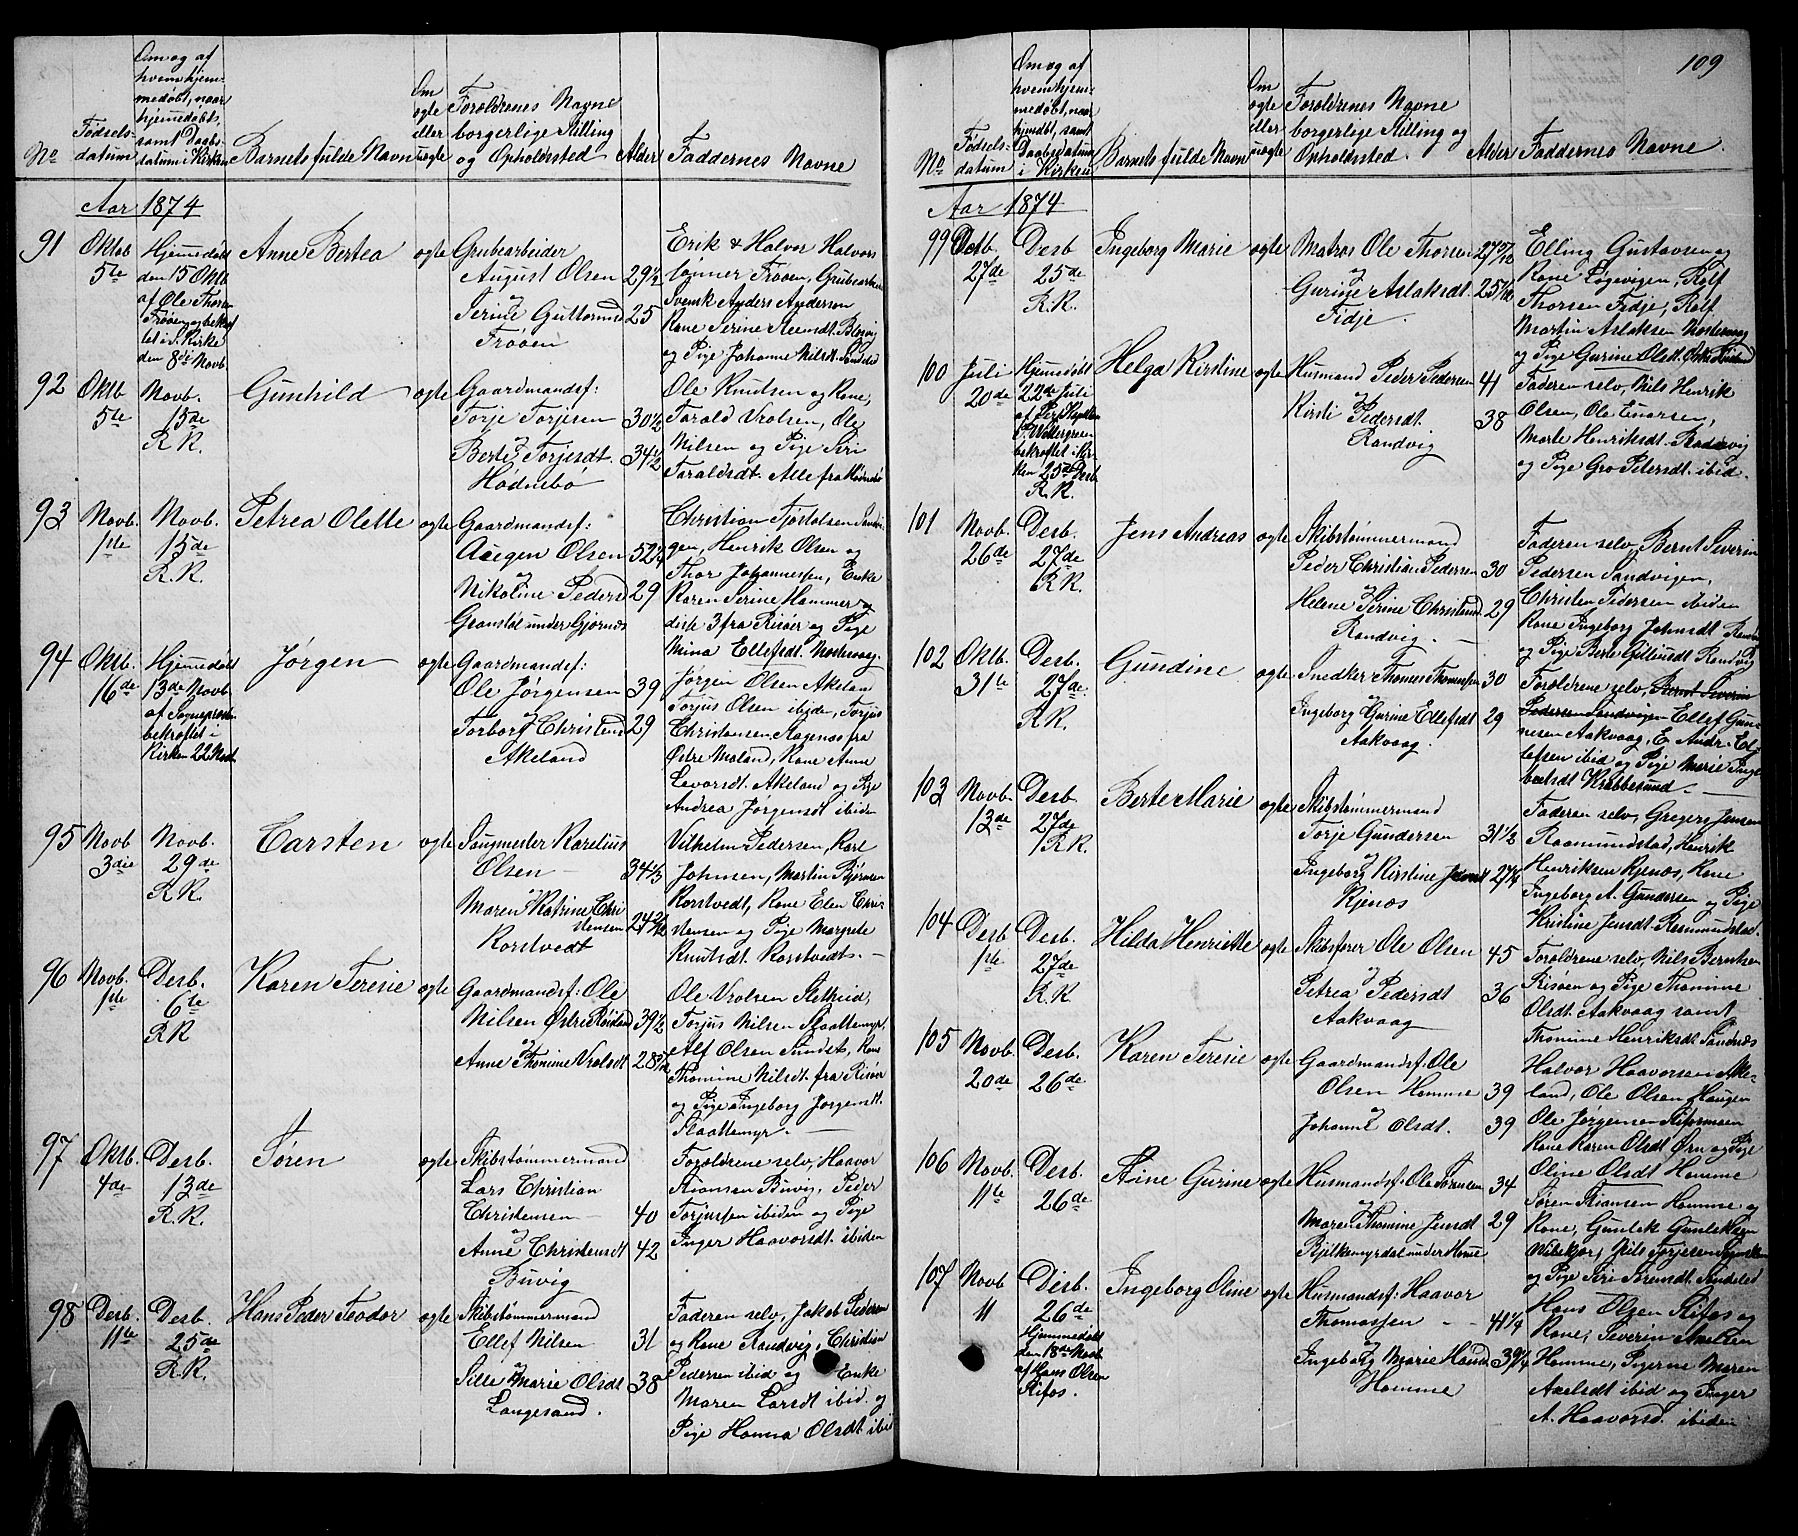 109
No
Fødsels-
datum
Om og af
hvem hjem-
medøbt, naar
hjemedøbt,
samt Daabs-
datum i Kirken
Barnets fulde Navn
Om
ægte
eller
uægte
Forældrenes Navne
borgerlige Stilling
og Opholdsted
Alder
Faddernes Navne
Aar 1874
91
Oktob
5te
Hjemmedøbt
den 15 Oktb
af Ole Thorsen
Frøen og bekræf
tet i Kirke
den 8de Novb.
Anne Bertea
ægte
Grubearbeider
August Olsen 29½
og
Serine Guttormsd 25
Frøen
Erik & Halvor Halvors
sønner Frøen, Grubearb
Svensk Anders Anderson
Kone Serine
og Pige Johanne Nilsdt.
92
Oktb
5te
Novb.
15de
R.K.
Gunhild
ægte
Gaardmandsf:
Torje Torjesen 30½
og
Berte Torjesdt. 34½
Hødnebø
Ole Knutsen og Kone,
Tarald Vrolsen, Ole
Nilsen og Pige Siri
Taraldsdt. Alle fra Hødnebø
93
Novb.
1ste
Novb.
15de
R.K.
Petrea Olette
ægte
Gaardmandsf:
Aaegen Olsen 52¼
og
Nikoline Pedersd 29
Granstøl under Gjernes
Christian Tjostolsen Sandvi
gen, Henrik Olsen og
Thor Johannessen, Enke
Karen Serine Hammer og
disse 3 fra Risøer og Pige
Mina Ellefsdt. Mostervaag.
94
Oktb.
16de
Hjemmedøbt
13de Novb.
af Sognepresten
bekræftet i
Kirken 22 Novb
Jørgen
ægte
Gaardmandsf:
Ole Jørgensen 39
og
Torborg Christensd 29
Akeland
Jørgen Olsen Akeland
Torjus Olsen ibiden, Torjus
Christensen Aagenæs fra
Østre Moland, Kone Anne
Levorsdt. Akeland og Pige
Andrea Jørgensdt ibiden
95
Novb
3die
Novb.
29de
R.K.
Carsten
ægte
Saugmester Karelius
Olsen 34⅓
og
Maren Katrine Chri
stensen 24
Rorstvedt
Vilhelm Pedersen, Karl
Johnsen, Martin Bjørnsen
Rorstvedt, Kone Elen Chris-
tensen og Pige Margrete
Knutsdt. Rorstvedt.
96
Novb.
1ste
Desb.
6te
R.K
Karen Teresie
ægte
Gaardmandsf: Ole
Nilsen Østre Røisland 39½
og
Anne Thomine Vrolsdt 28
Ole Vrolsen Sletheid,
Torjus Nilsen Slaattemyr.
Alf Olsen Sundet, Kone
Thomine Nilsdt. fra Risøer
og Pige Ingeborg Jørgensdt.
Slaattemyr.
97
Oktb.
4de
Desb.
13de
R.K.
Søren
ægte
Skibstømmermand
Lars Christian
Christensen 40
og
Anne Christensdt 42
Buvig
Forældrene selv, Haavor
Stiansen Buvig, Peder
Torjussen ibiden og Pige
Inger Haavorsdt ibiden
98
Desb.
11te
Desb.
25de
R.K.
Hans Peder Teodor
ægte
Skibstømmermand
Ellef Nilsen 31
og
Sille Marie Olsdt 38
Langesand.
Faderen selv, Jakob Pedersen
og Kone Randvig, Christian
Pedersen ibid og Enke
Maren Larsdt ibid. og
Pige Hanna Olsdt ibid
No
Fødsels-
datum
Om og af
hvem hjem-
medøbt, naar
hjemdøbt, samt
Daabsdatum
i Kirken
Barnets fulde Navn
Om
ægte
eller
uægte
Forældrenes Navne
borgerlige Stilling og
Opholdsted.
Alder
Faddernes Navne
Aar 1874
99
Octb.
27de
Desb
25de
R.K.
Ingeborg Marie
ægte
Matros Ole Thorsen 27
og
Gurine Aslaksdt. 25
Fidje
Elling Gustavsen og
Kone Løgevigen, Rolf
Thorsen Fidje, Rolf
Martin Aslaksen Mostervaag
og Pige Gurine Olsdt.
100
Juli
20de
Hjemedøbt
22de Juli
af Pers Kapellan
P. Wettergreen
bekræftet i Kir-
ken 25de Desb.
R.K.
Helga Kirstine
ægte
Husmand Peder Pedersen 41
og
Kirsti Pedersdt. 38
Randvig
Faderen selv, Nils Henrik
Olsen, Ole Einarsen,
Marte Henriksdt. Randvig
og Pige Gro Petersdt. ibid.
101
Novb.
26de
Desb.
27de
R.K.
Jens Andreas
ægte
Skibstømmermand
Peder Christian Pedersen 30
og
Helene Serine Christensd 29
Randvig.
Faderen selv, Bernt Severin
Pedersen Sandvigen,
Christen Pedersen ibiden
Kone Ingeborg Johnsdt Randvig
og Pige Berte Gutlusdt Randvig
102
Oktb.
31te
Desb.
27de
R.K.
Gundine
ægte
Snedker Thomas Thomassen 30
og
Ingeborg Gurine Ellefsdt 29
Aakvaag.
Forældrene selv, Bernt Severin
Pedersen Sandvigen Ellef Gun-
nesen Aakvaag, E. Andr. El-
lefsen ibid og Pige Marie Inge
bretsdt Krabbesund
103
Novb.
13de
Desb.
27de
R.K.
Berte Marie
ægte
Skibstømmermand
Torje Gundersen 31½
og
Ingeborg Kirstine Jensdt 27¼
Kjenos
Faderen selv, Gregers Jensen
Rasmundstad, Henrik
Henriksen Kjenos, Kone
Ingeborg A. Gundersen og Pige
Kristine Jensdt. Rasmundstad.
104
Desb
1ste
Desb.
27de
R.K
Hilda Henriette
ægte
Skibsfører Ole Olsen 45
og
Petrea Pedersdt 36
Aakvaag
Forældrene selv, Nils Berntsen
Risøen og Pige Thomine
Olsdt. Aakvaag samt
Thomine Henriksdt. Sandnes
105
Novb.
20de
Desb.
26de
Karen Teresie
ægte
Gaardmandsf: Ole
Olsen Homme 39
og
Johanne Olsdt. 39
Halvor Haavorsen Ake-
land, Ole Olsen Haugen
Ole Jørgensen
Kone Karen Olsdt Ørn og Pige
Oline Olsdt Homme
106
Novb.
11te
Desb.
26de
Stine Gurine
ægte
Husmandsf: Ole Sørensen 34
og
Maren Thomine Jensdt 29
Bjelkemyrdal under Home
Søren Stiansen Homme og
Kone, Gunlek Gunleksen
Nils Torjesen
og Pige Siri
107
Novb
11
Desb.
26de
Hjemmedøbt
den 18de Novb
af Hans Olsen
Rifos.
Ingeborg Oline
ægte
Husmandsf: Haavor
Thomassen 41¼
og
Ingeborg Marie Hansd 39¼
Homme
Hans Olsen Rifos og
Kone, Severin Axelsen
Homme, Pigerne Maren
Axelsdt ibid og Inger
A. Haavorsd. ibiden